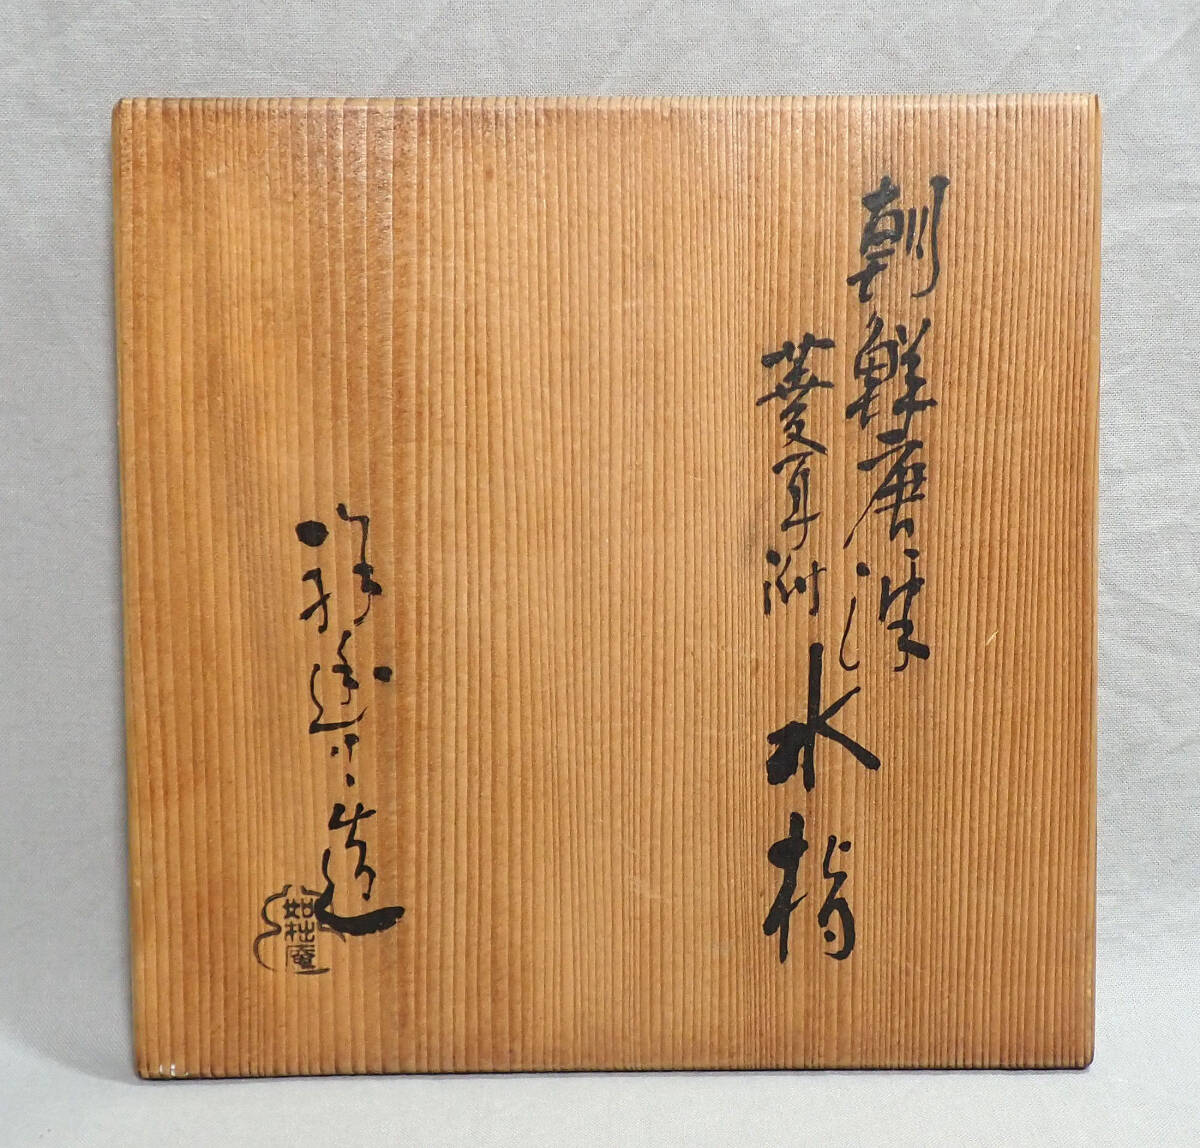 朝鮮唐津
菱耳附
水指
造
如拙庵